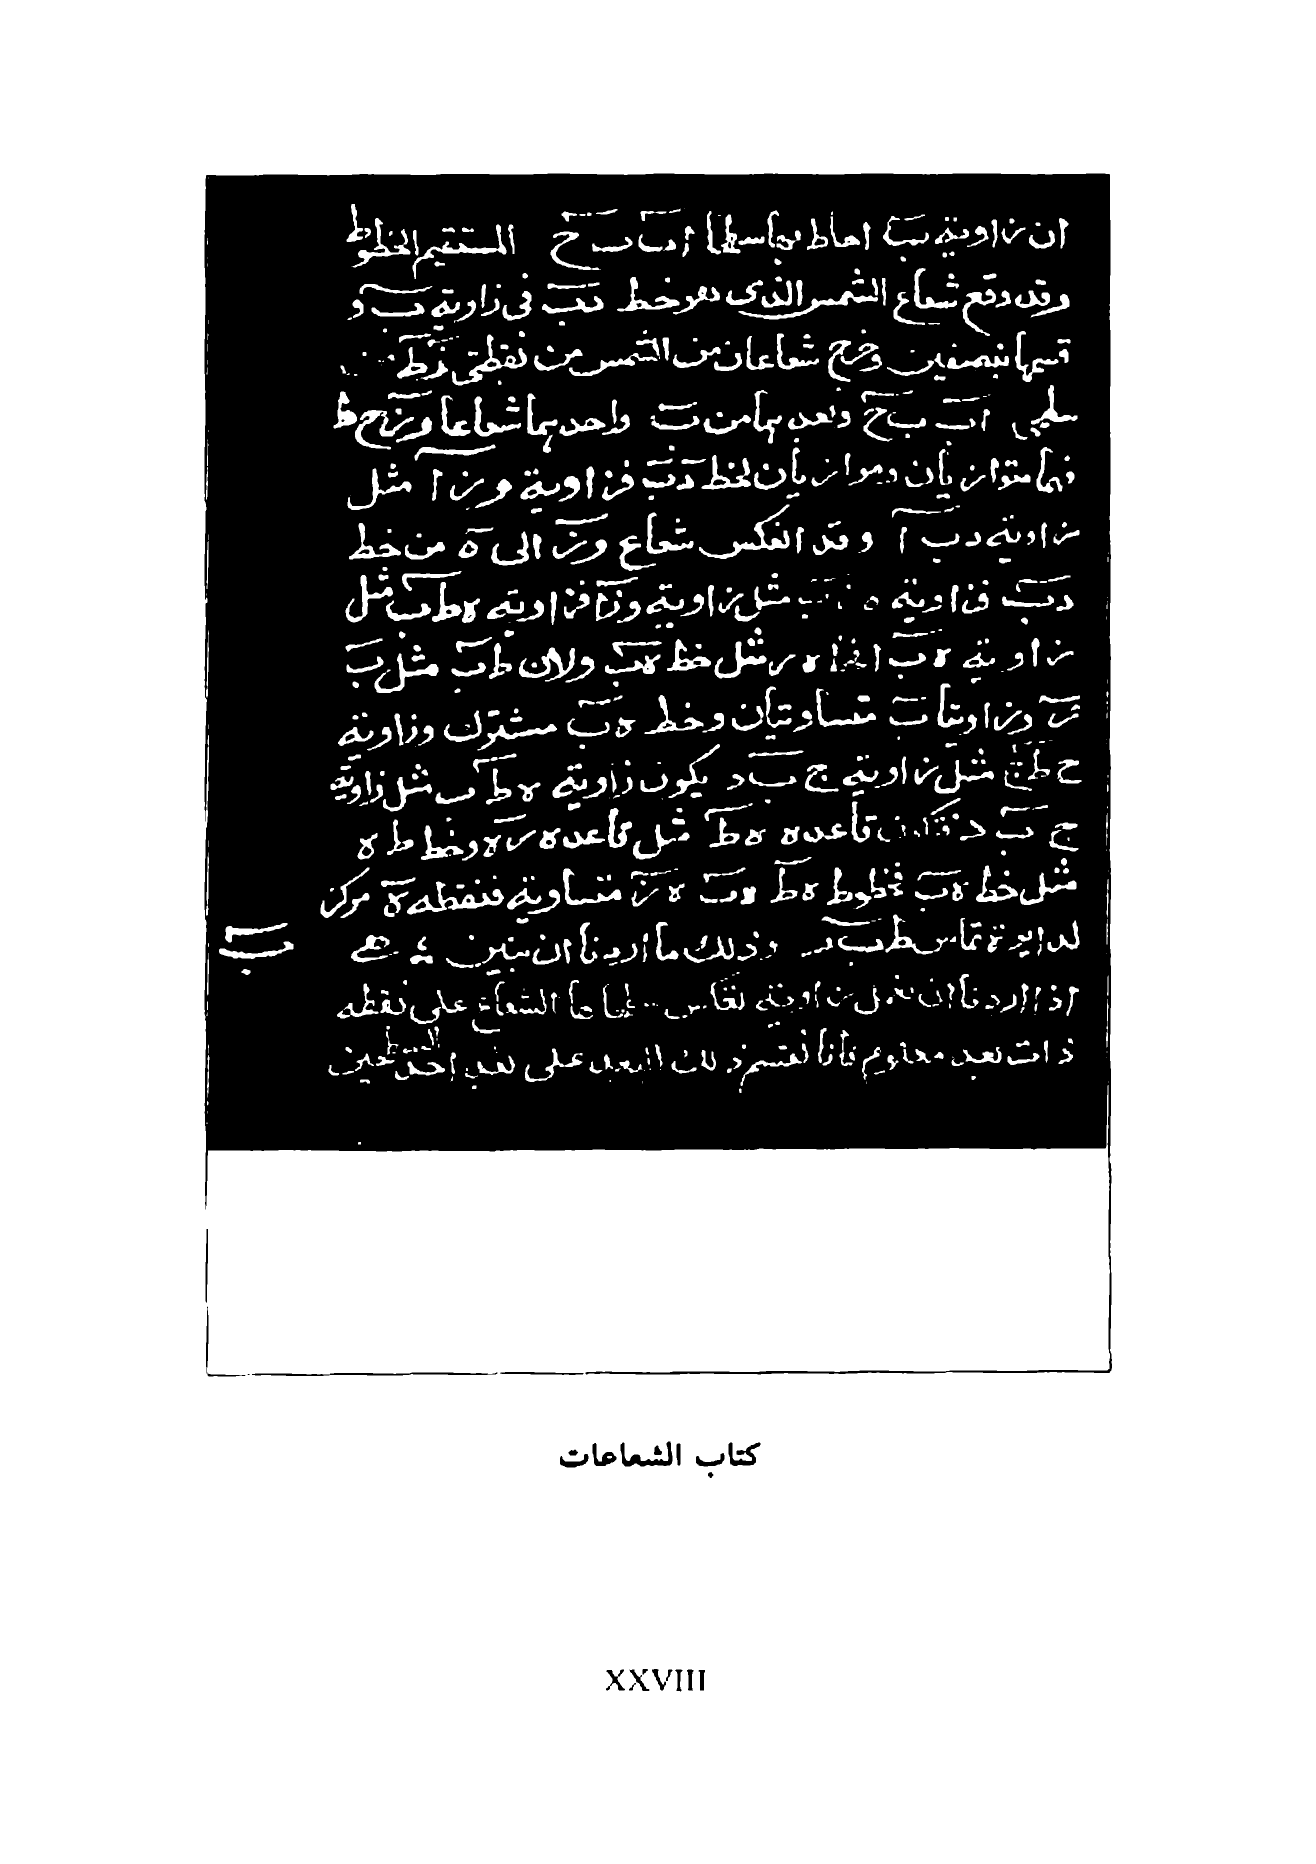 ان زاوية ب احاط بها سطحا ا ب ب ح المستقيم الخطوط
وقد وقع شعاع الشمس الذى هو خط د ب فى زاوية ب و
قسمها بنصفين وخرج شعاعان من الشمس من نقطتى
سطحى ا ب ب ح وبعدهما من ب واحد وهما شعاعا و ز ح ط
فهما متوازيان وموازيان لخط د ب فزاوية و ز ا مثل
زاوية د ب ا وقد انعكس شعاع و ز الى ه من خط
د ب فزاوية ه ز ب مثل زاوية و ز ا فزاوية ه ط ب مثل
زاوية ه ب ه ز مثل خط ه ب ولان ط ب مثل ب
ز وزاويتا ب متساويتان وخط ه ب مشترك وزاوية
ح ط ج مثل زاوية ج ب د يكون زاوية ه ط ب مثل زاوية
ج ب د قاعدة ه ط مثل قاعدة ه ز وخط ط ه
مثل خط ه ب فخطوط ه ط ه ب ه ز متساوية فنقطه ه مركز
لدايرة تماس ط ب ز وذلك ما اردنا ان نبين
ب
اذا اردنا ان نعمل زاوية الشعاع على نقطه
ذات بعد معلوم فانا نقسم ذلك البعد على
كتاب الشعاعات
XXVIII